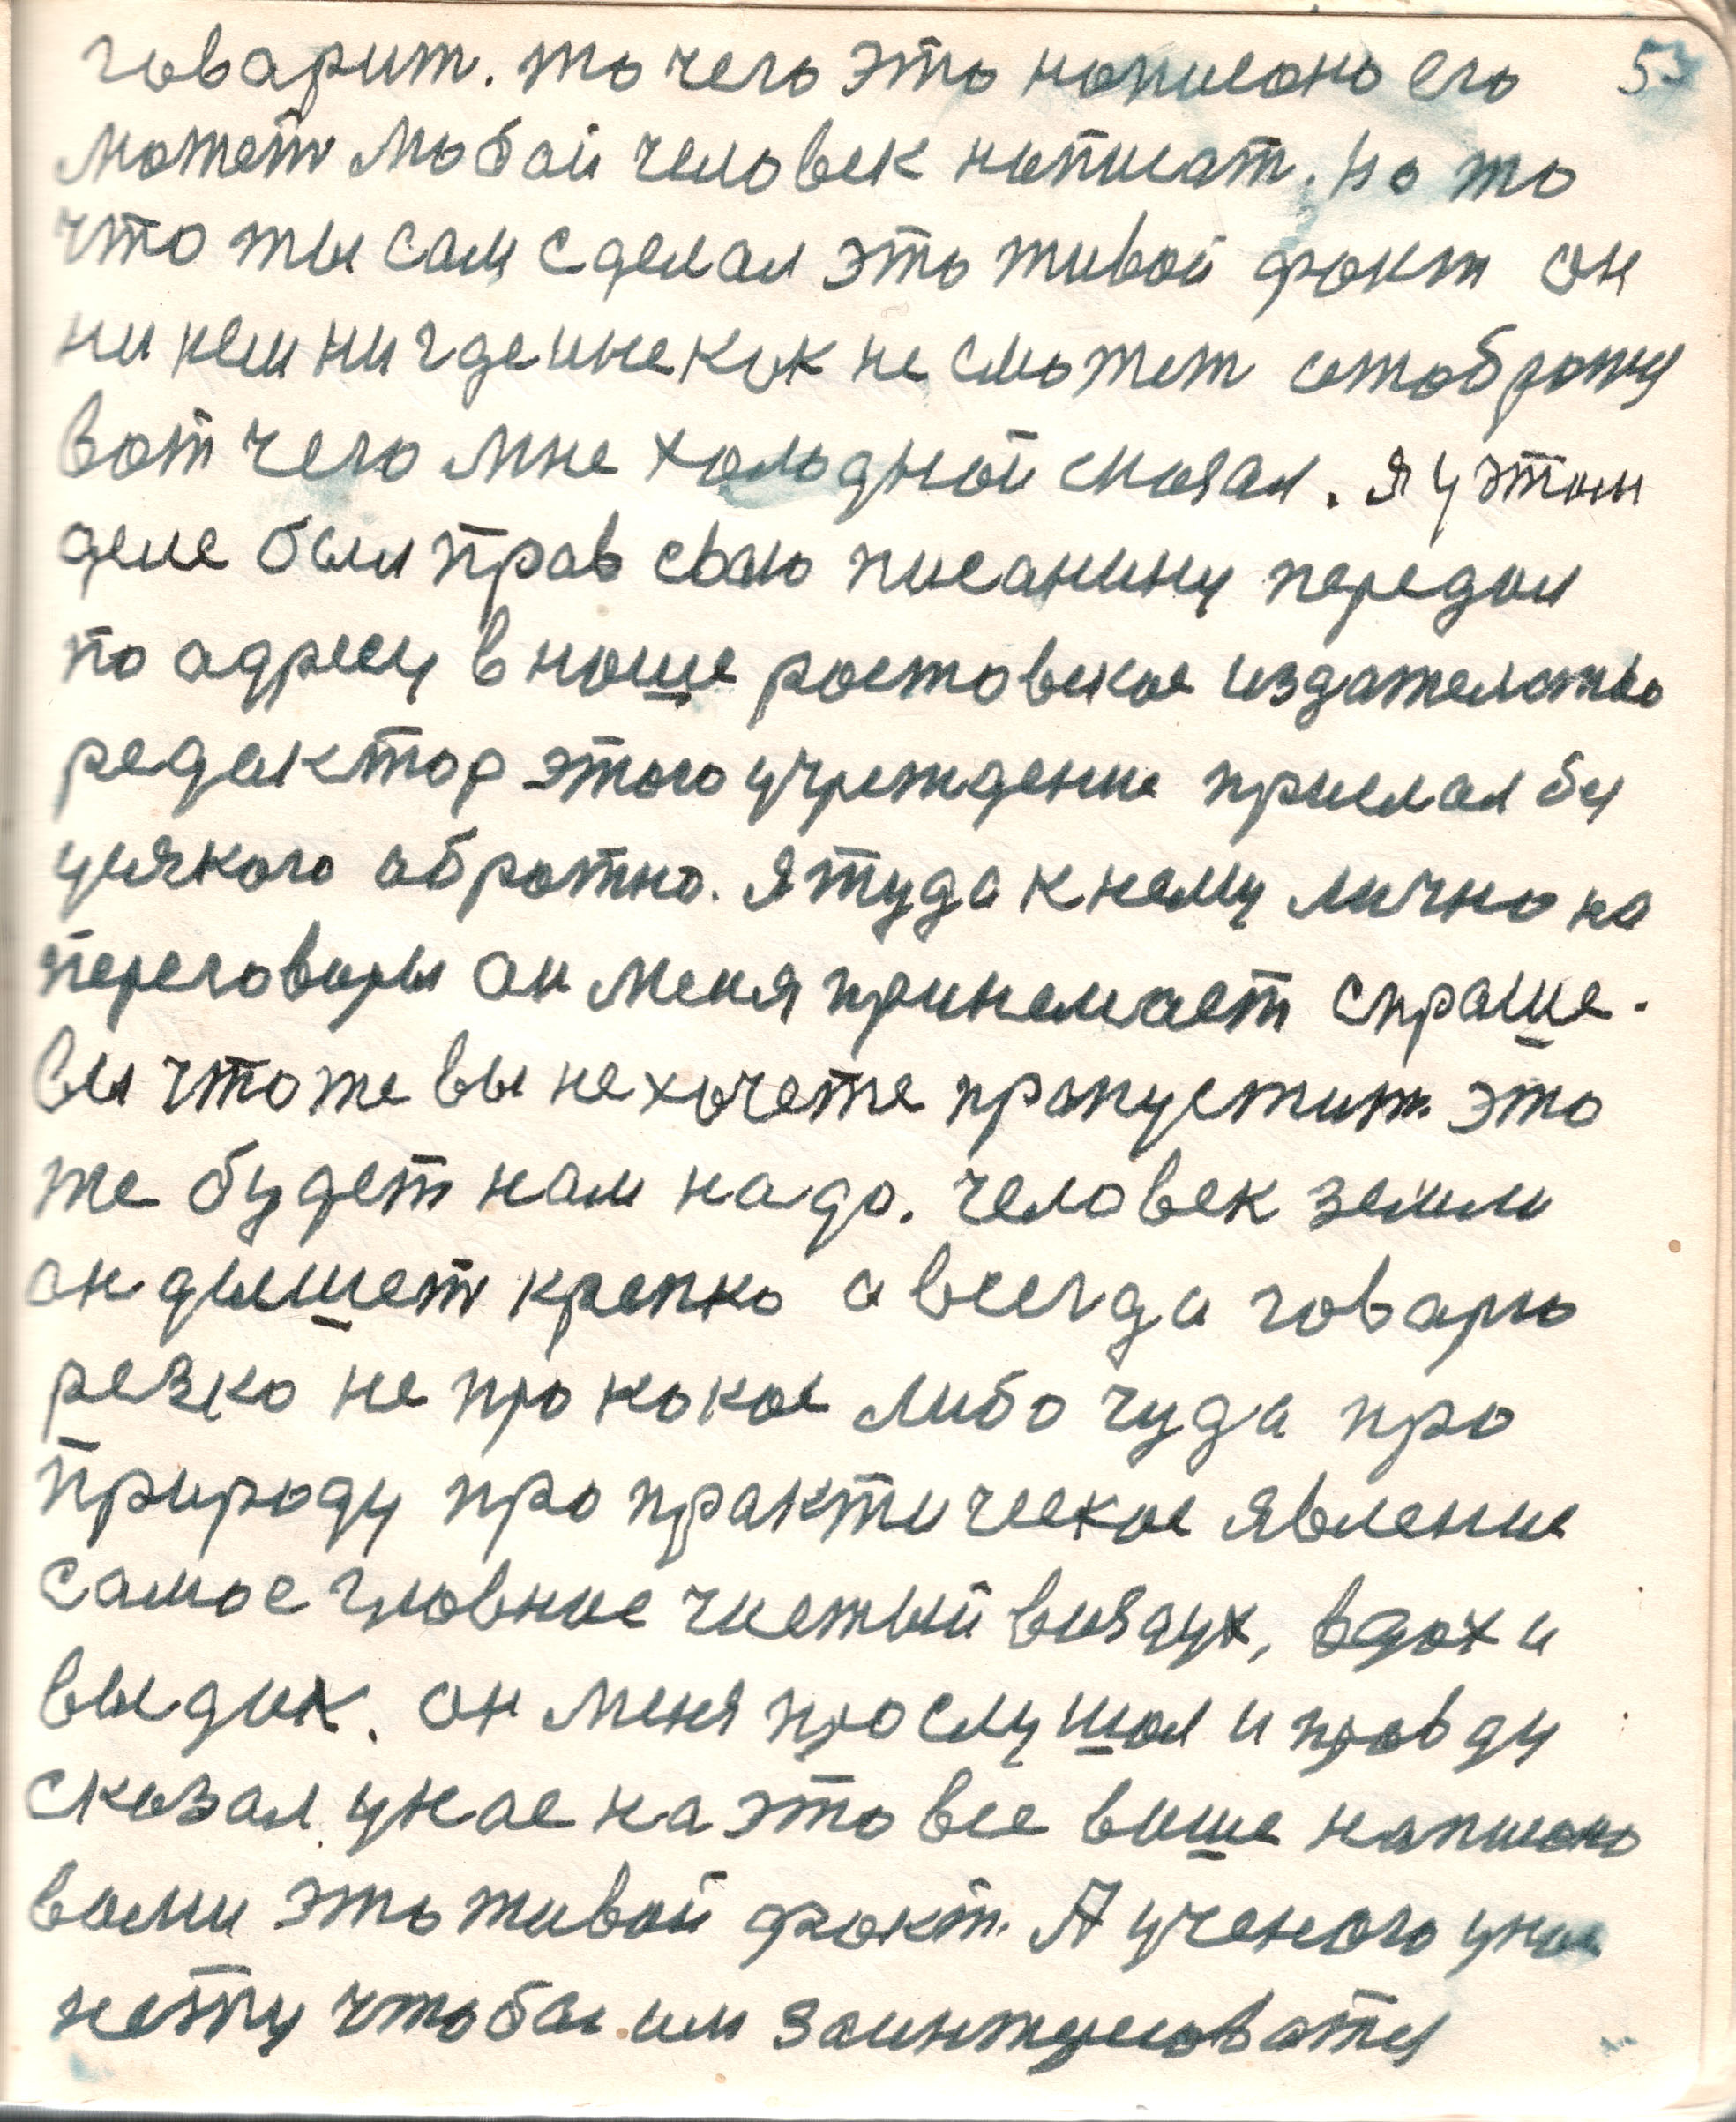 говарит. то чего это написано его 53
может любой человек написат. Но то
что ты сам сделал это живой факт он
ни кем ни где инекак не сможет отоброжя
вот чего мне холодной сказал. я у этом
деле был прав сваю писанину передал
по адресу в наше ростовское издателство
редактор этого учреждение прислал бу
цукого обротно. я туда к нему лично на
переговоры он меня принемает спраше.
вы что же вы не хочете пропустит. это
же будет нам надо. человек земли
он дышет крепко а всегда говарю
резко не про какое либо чуда про
природу про практическое явление
самое гловное чистый воздух, вдох и
выдих. он меня прослушал и правду
сказал у нас на это все выше написано
вами это живой факт. А ученого у нас
нету чтобы им заинтересоватся